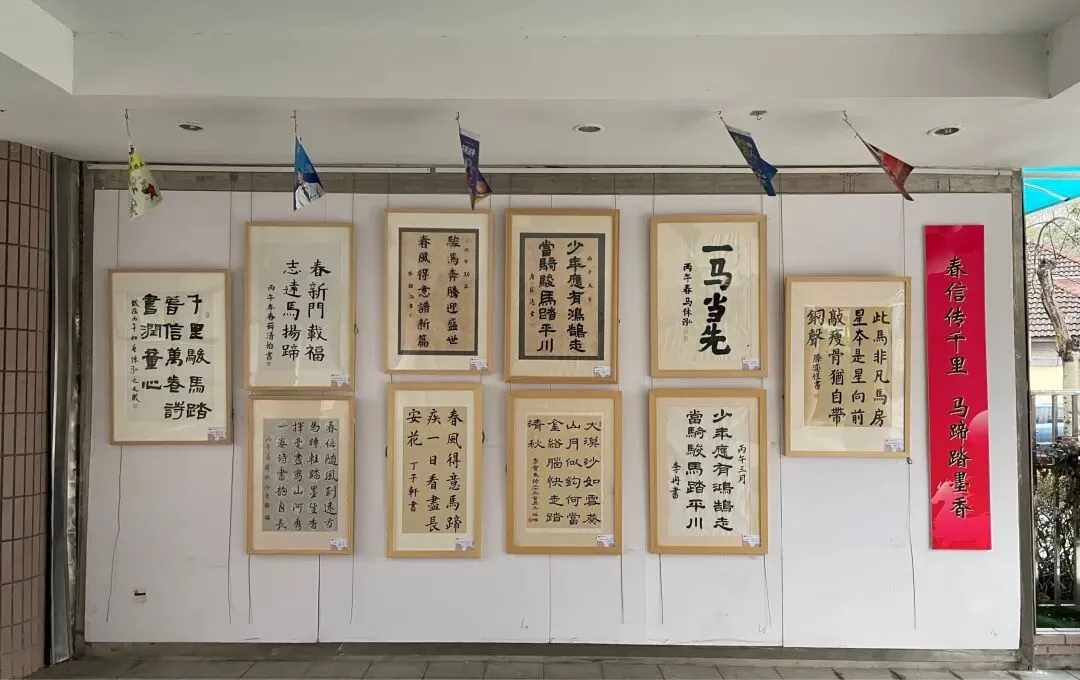 千里駿馬踏
春信萬卷詩
書潤童心
春新門載福
志遠馬揚蹄
丙午年春薛清怡書
春信隨風到遠方
馬蹄輕踏墨生香
揮毫盡寫山河秀
一卷詩書韵自長
駿馬奔騰迎盛世
春風得意譜新篇
春風得意馬蹄
疾一日看盡長
安花
丁子軒書
少年應有鴻鵠志
當騎駿馬踏平川
大漠沙如雪燕
山月似鈎何當
金絡腦快走踏
清秋
一马当先
丙午春马
丙午三月
少年應有鴻鵠志
當騎駿馬踏平川
李冉書
此馬非凡馬房
星本是星向前
敲瘦骨猶自帶
銅聲
春信传千里 马蹄踏墨香